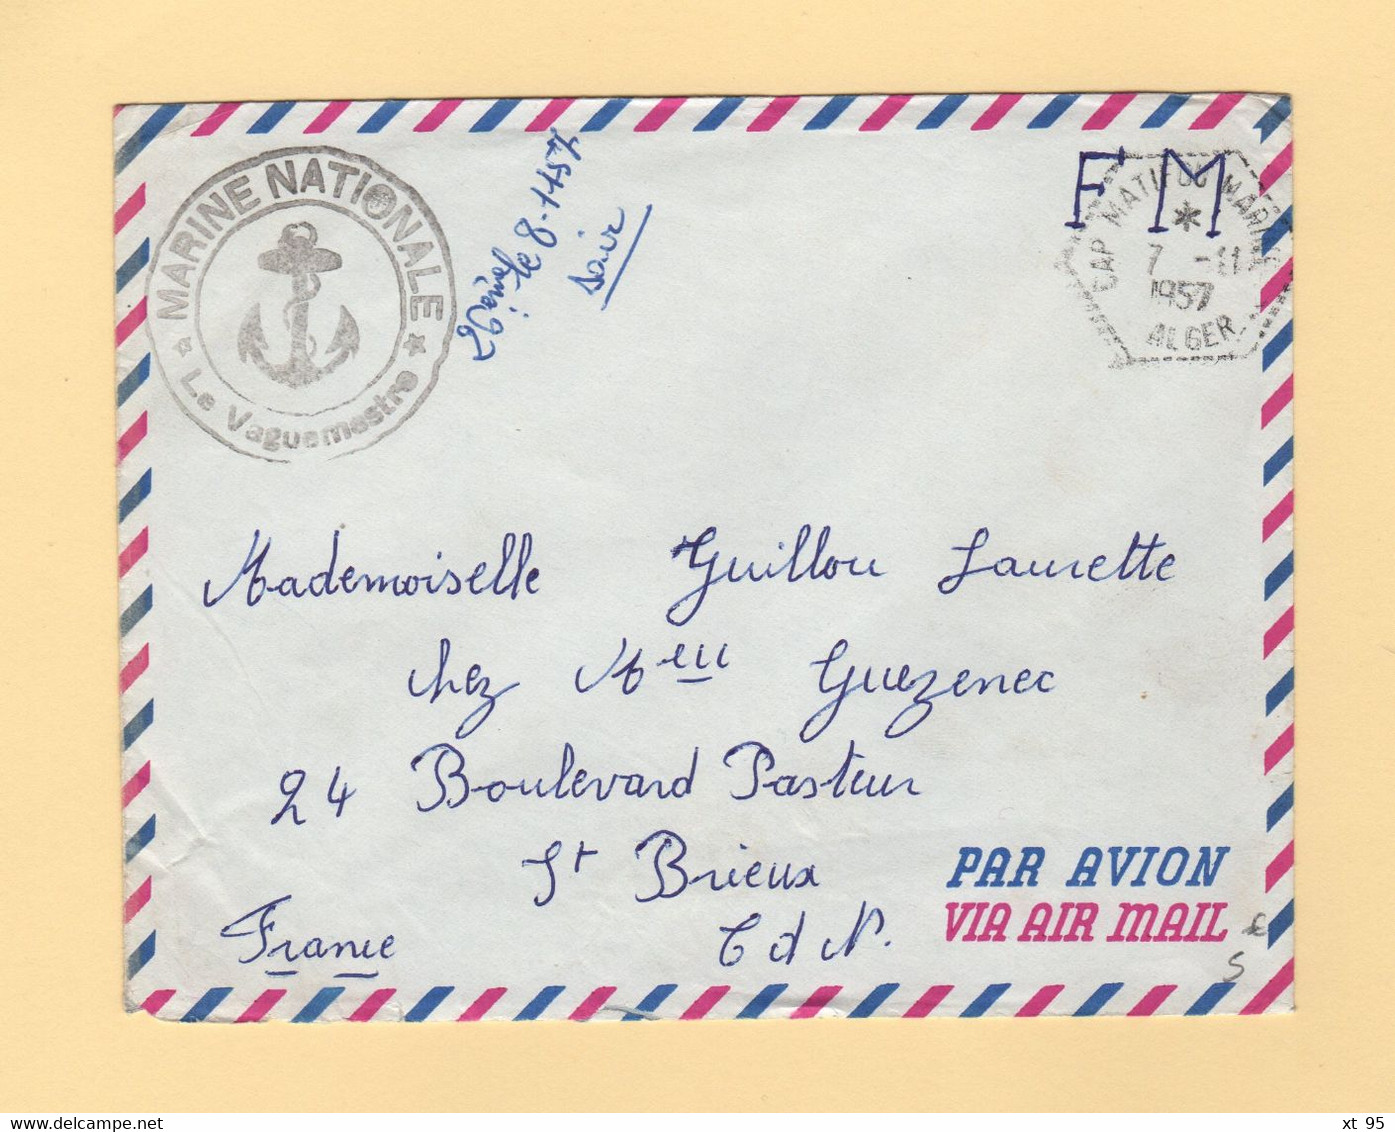 MARINE NATIONALE
Le Vaguemestre
le 8-11-57
soir
F M
CAP MATIFOU MARINE
7 -11
1957
ALGER
Mademoiselle Guillou Laurette
chez Meur Guezenec
24 Boulevard Pasteur
St Brieux
C d N.
France
PAR AVION
VIA AIR MAIL
S
xt 95